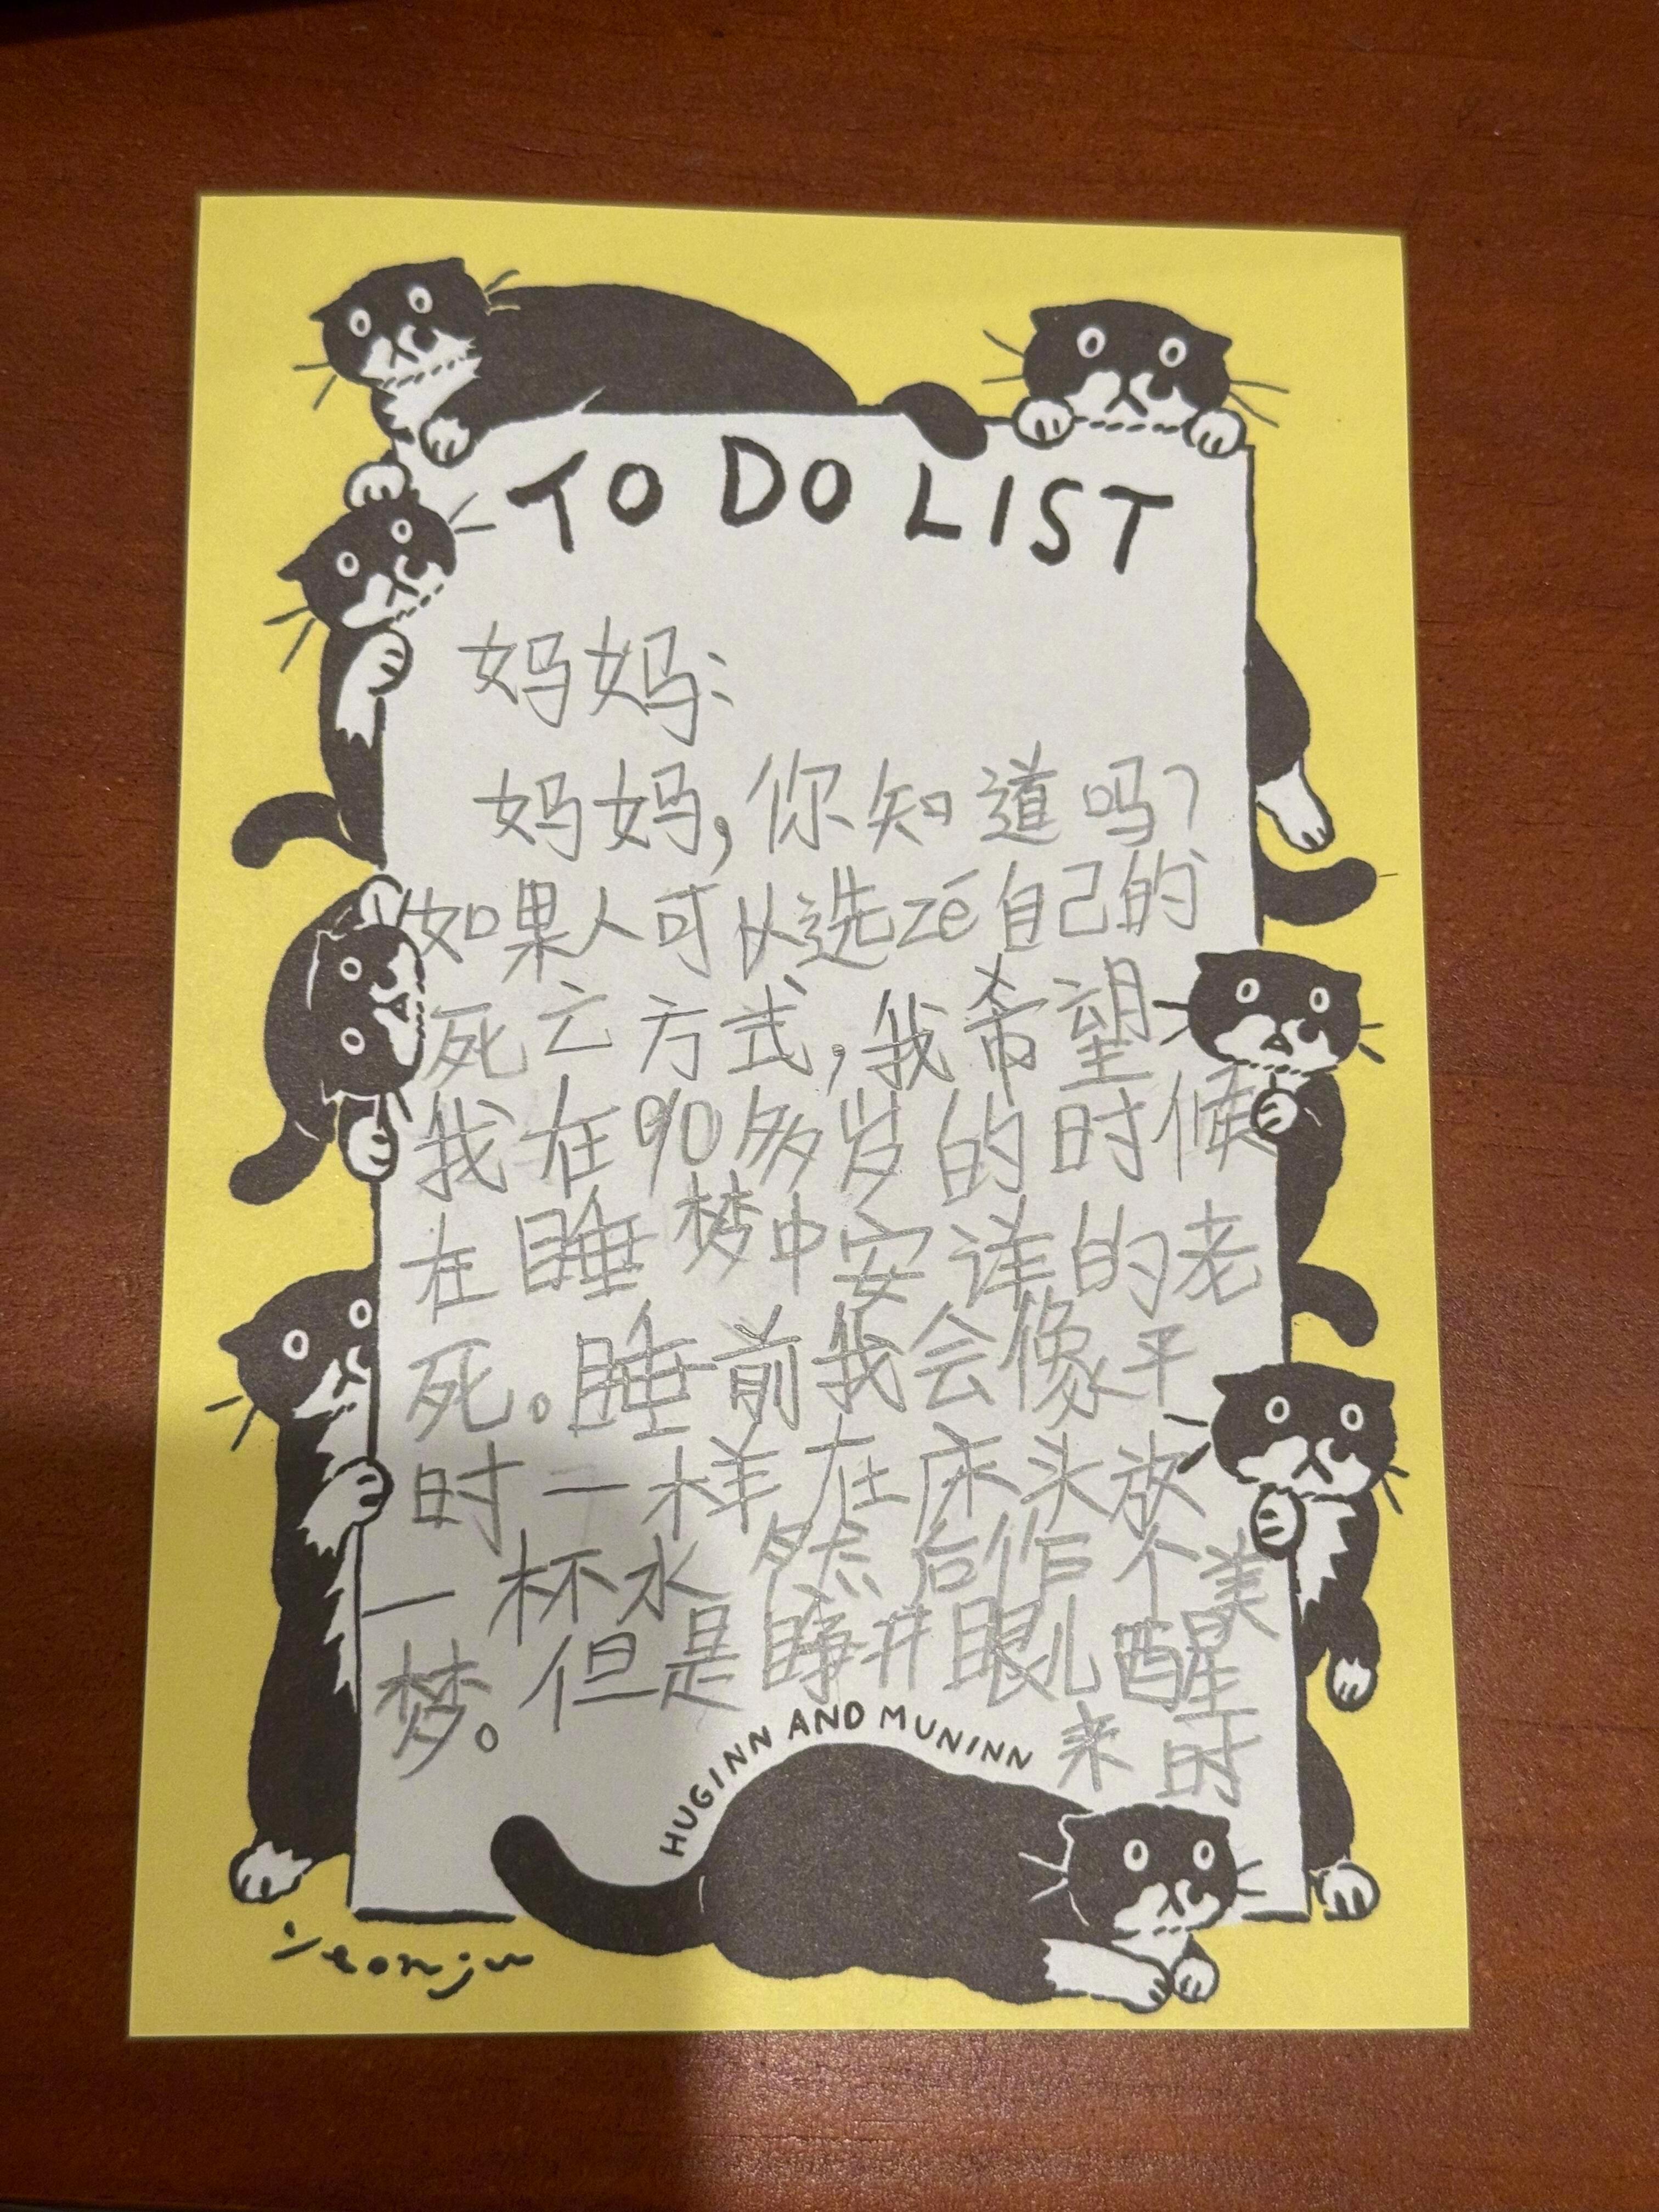 TO DO LIST
妈妈：
妈妈，你知道吗？
如果人可以选zé自己的
死亡方式，我希望
我在90多岁的时候
在睡梦中安详的老
死。睡前我会像平
时一样在床头放
一杯水然后作个美
梦。但是睁开眼儿醒
来时
HUGINN AND MUNINN
yeonju